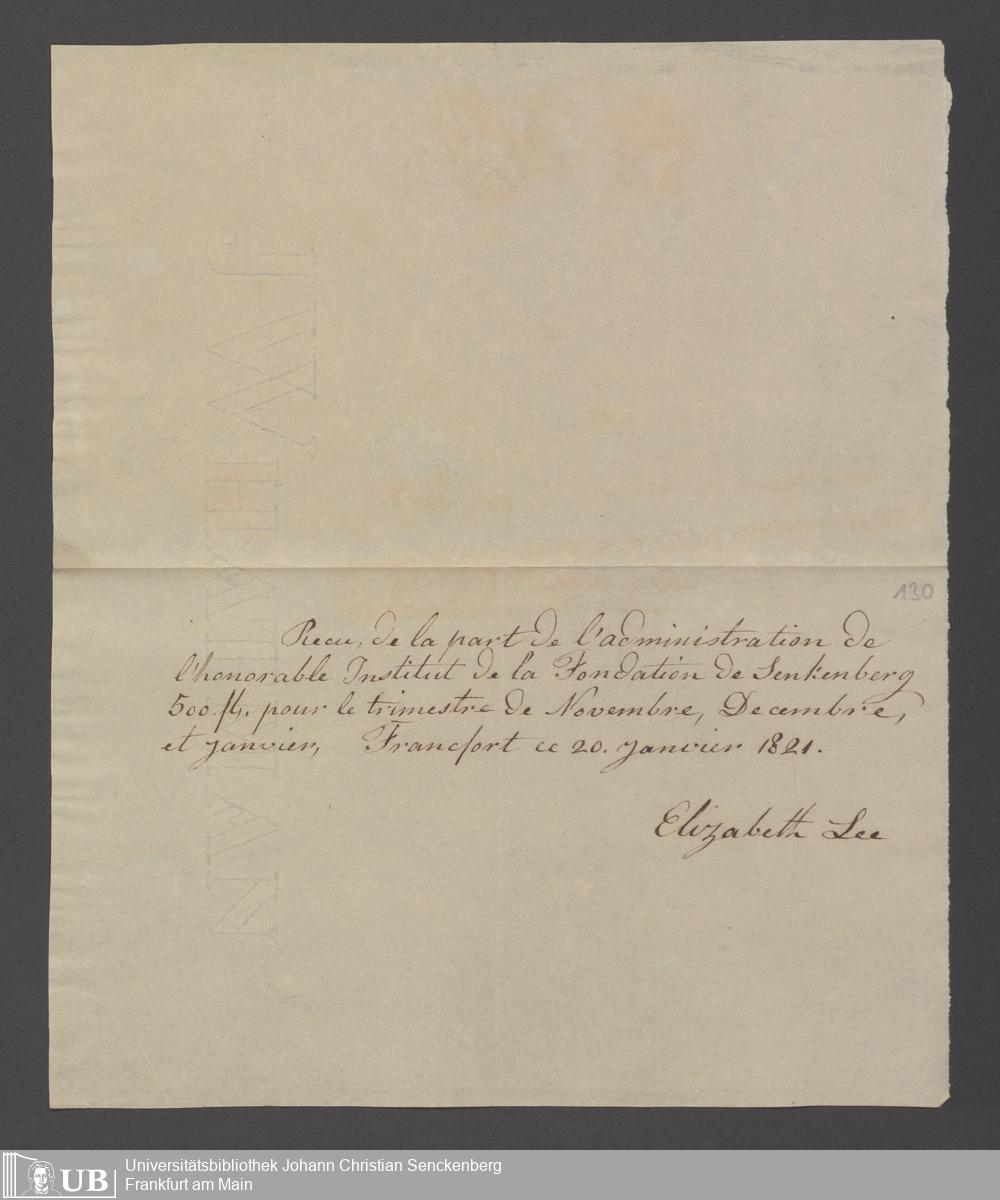 130
Recu, de la part de l'administration de
l'honorable Institut de la Fondation de Senkenberg
500. fl. pour le trimestre de Novembre, Decembre,
et janvier, Francfort ce 20. janvier 1821.
Elizabeth Lee
J WHATMAN
UB
Universitätsbibliothek Johann Christian Senckenberg
Frankfurt am Main